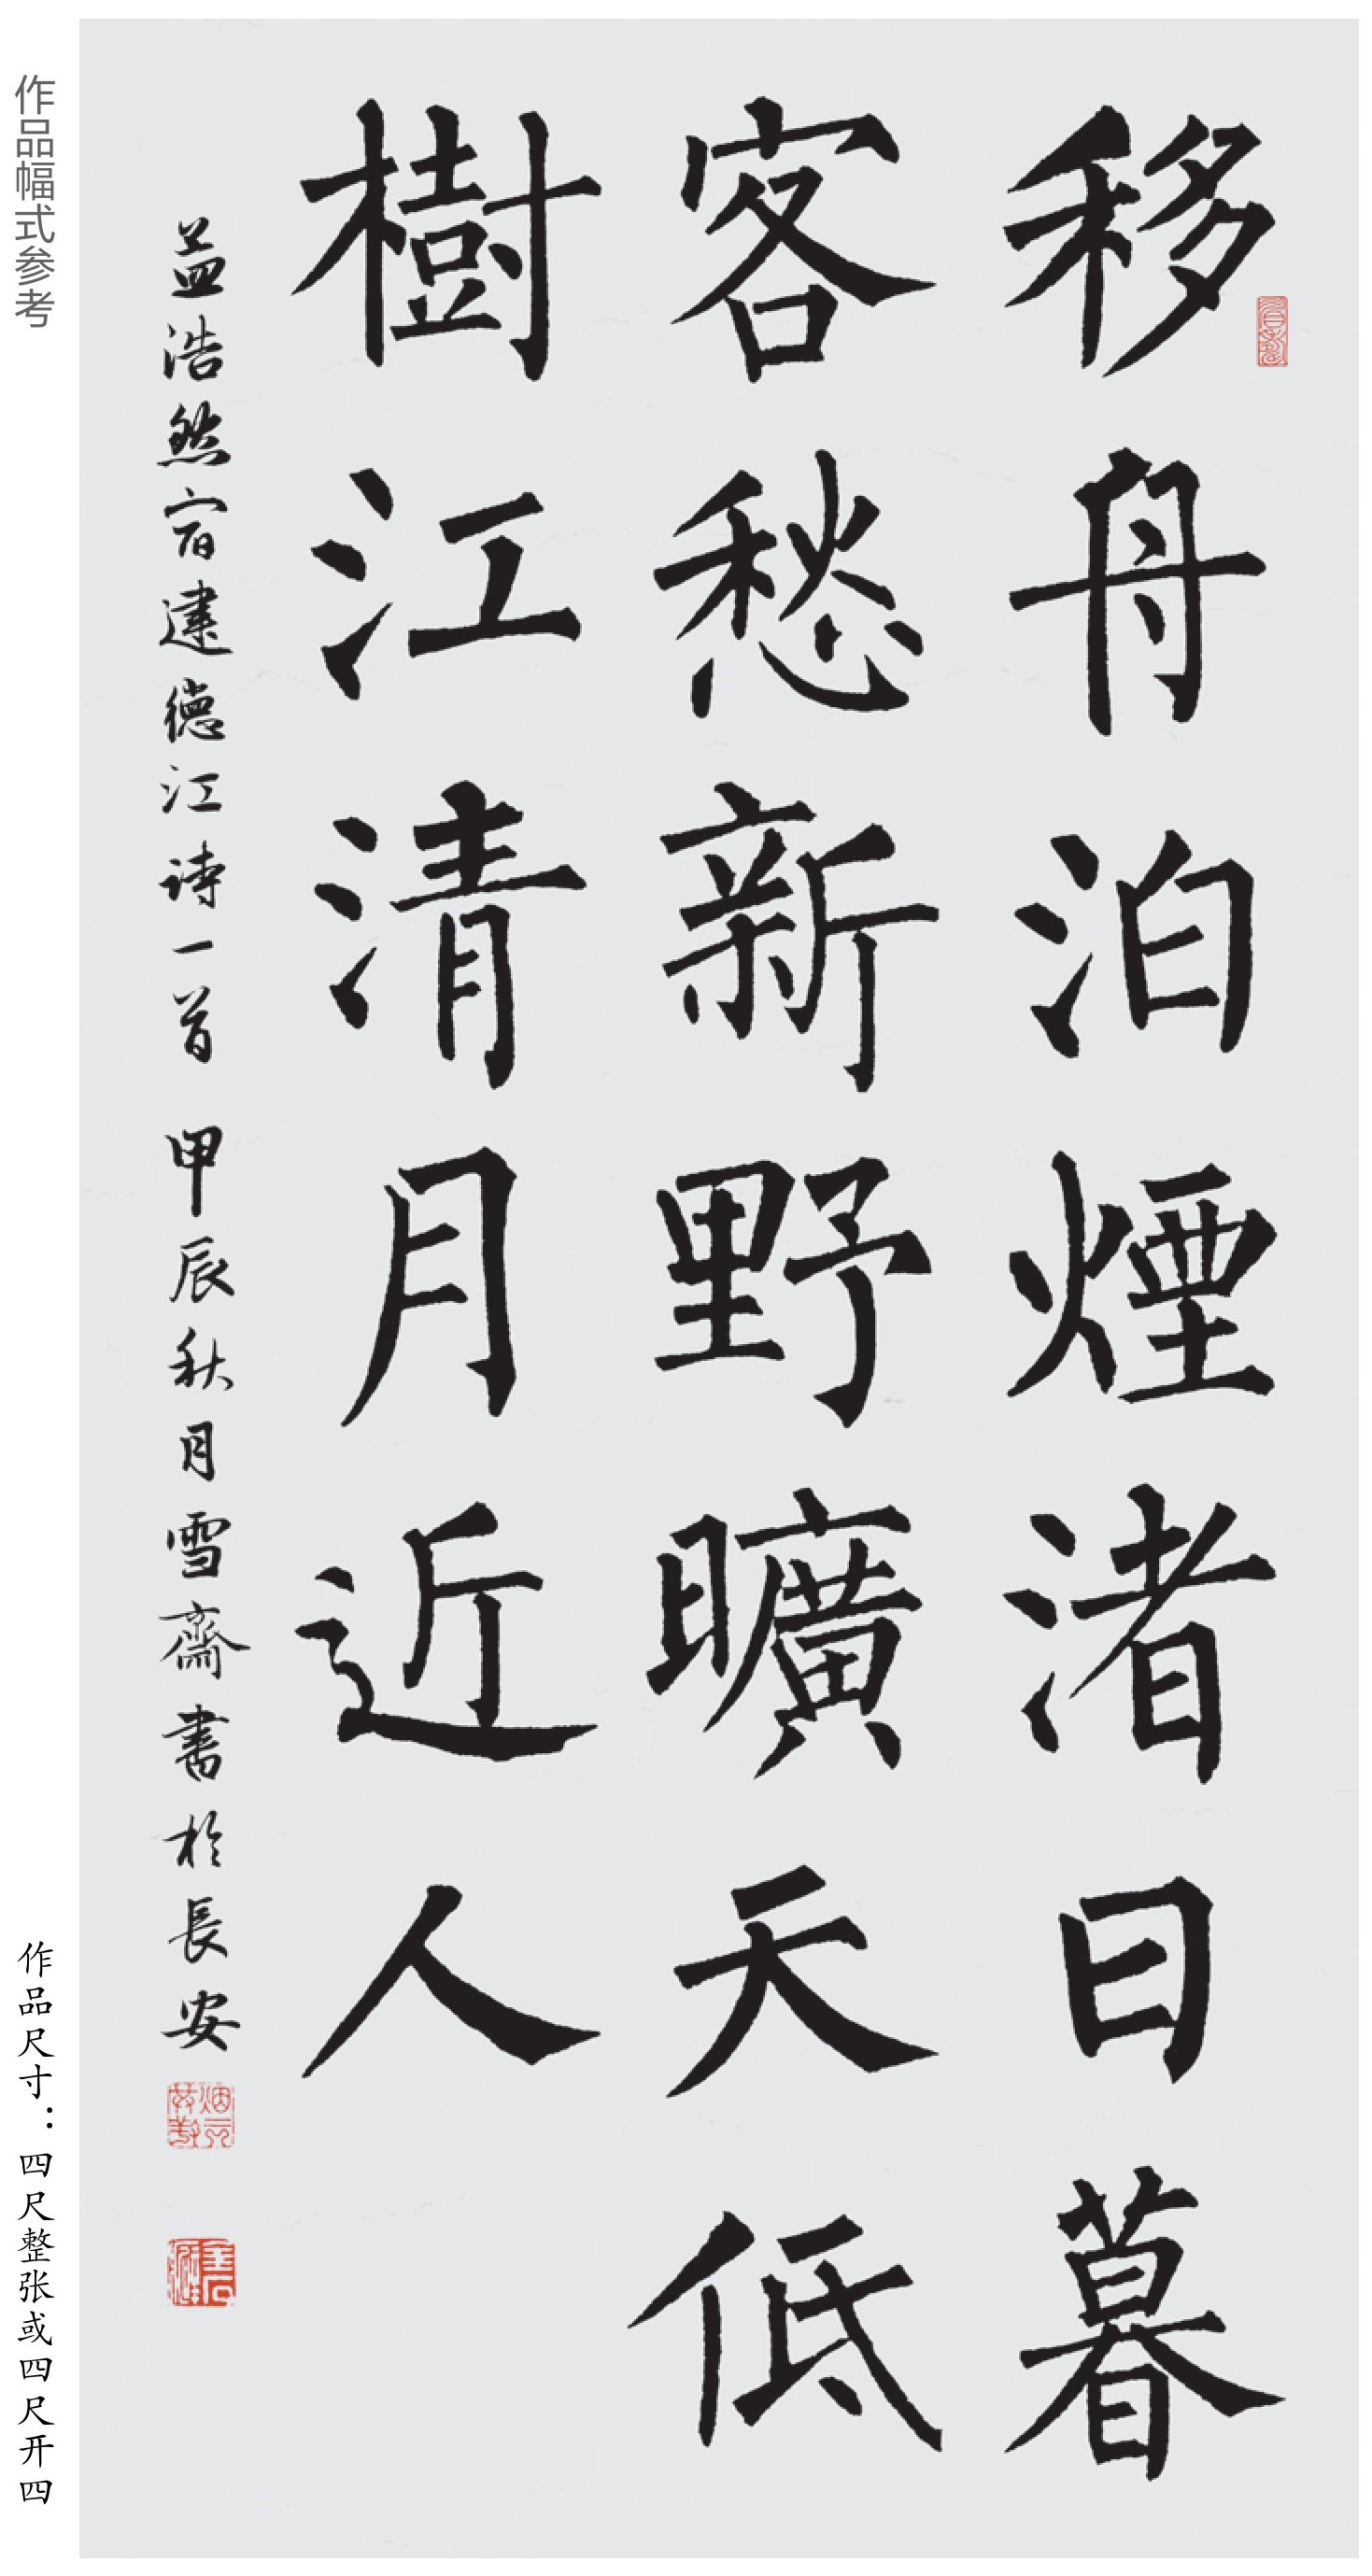 移舟泊煙渚日暮
客愁新野曠天低
樹江清月近人
孟浩然宿建德江诗一首 甲辰秋月雪齋书於長安
作品幅式参考
作品尺寸：四尺整张或四尺开四